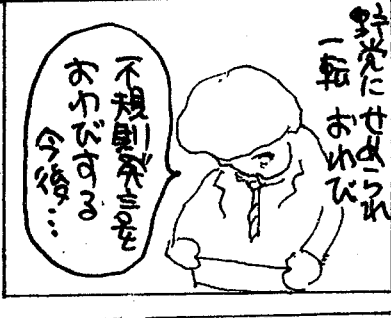 野党にせめられ
一転 おわび
不規則発言を
おわびする
今後…